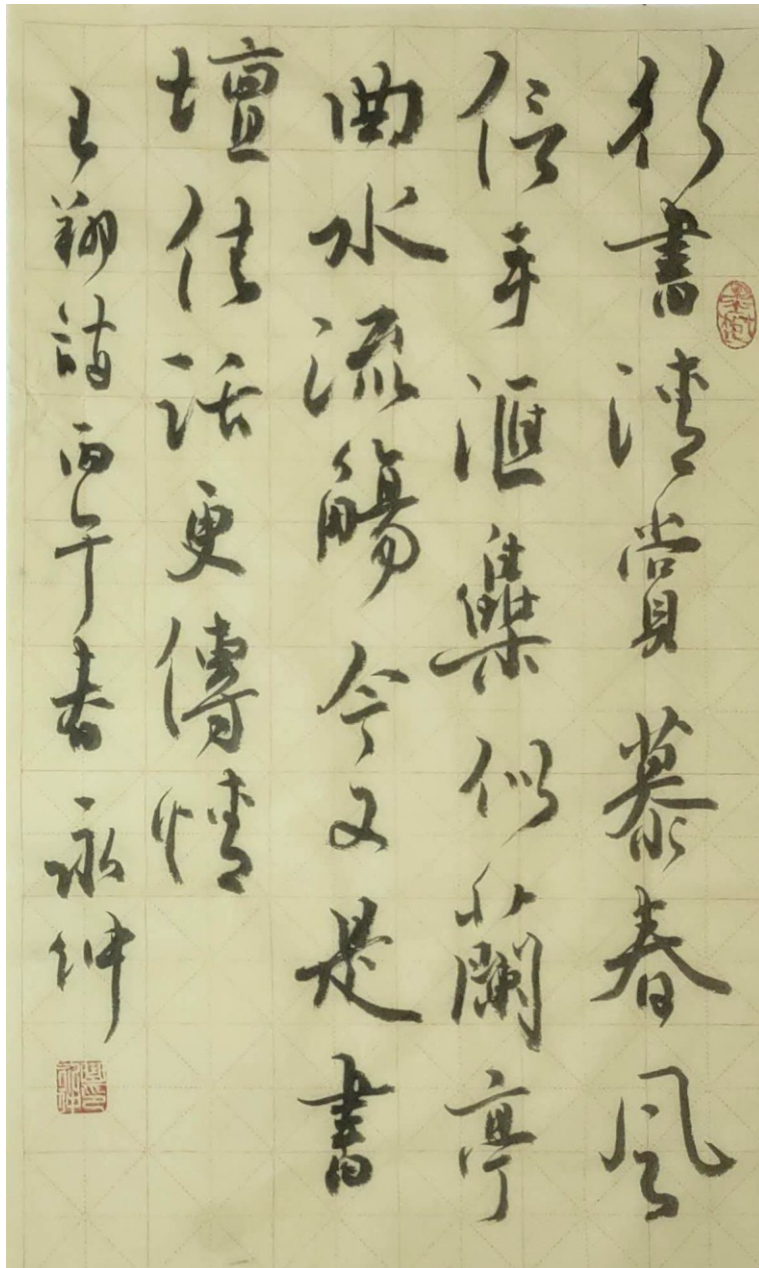 行書清賞慕春風
信手匯集似蘭亭
曲水流觴今又是書
壇佳話更傳情
王翔詩丙午春永紳